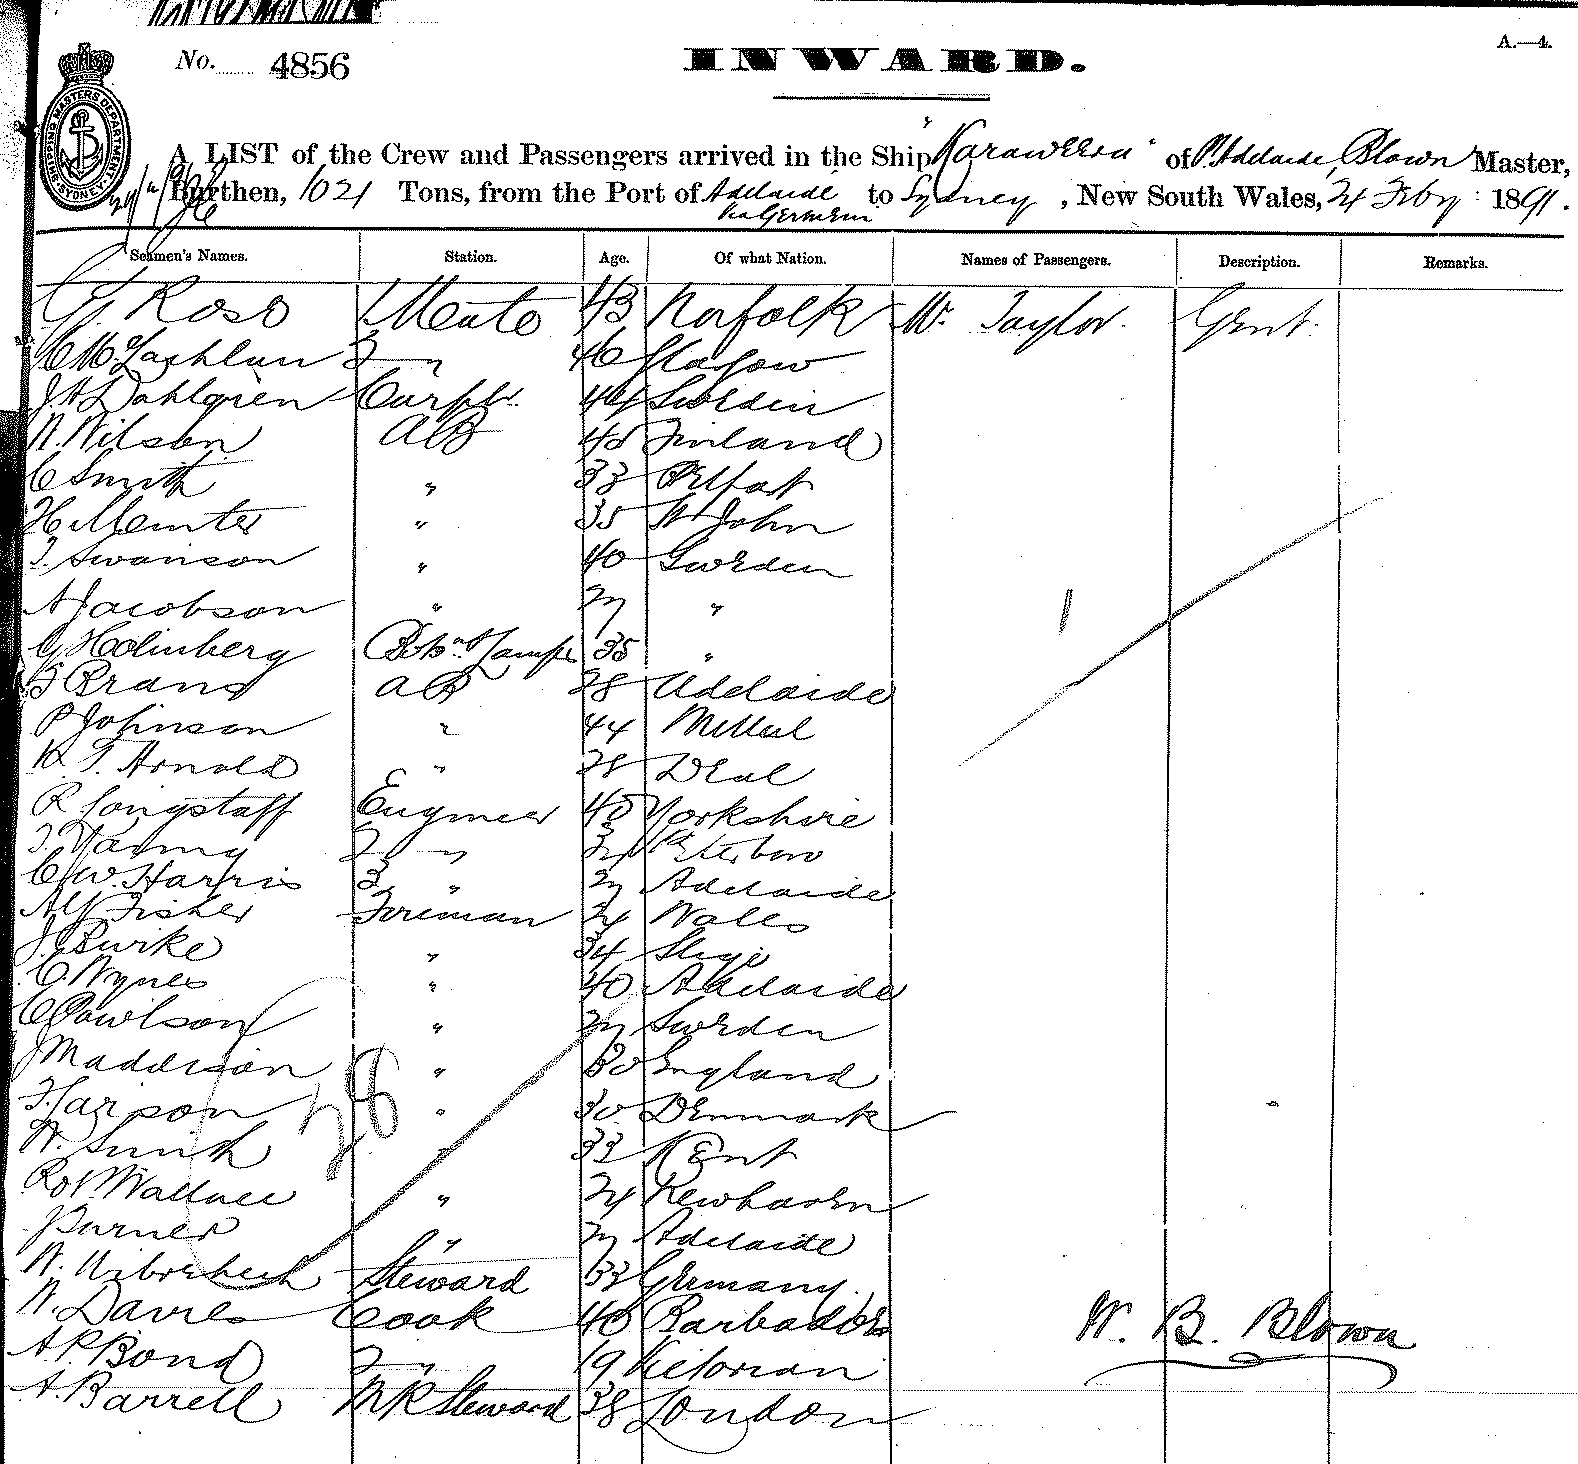 No. 4856
INWARD.
A.—4.
SHIPPING MASTERS DEPARTMENT
A LIST of the Crew and Passengers arrived in the Ship "Karaweera" of Pt. Adelaide, Blown Master,
Burthen, 1021 Tons, from the Port of Adelaide to Sydney, New South Wales, 24 Feby 1891.
via Germein
Seamen's Names. Station. Age. Of what Nation. Names of Passengers. Description. Remarks.
Ross Mate 43 Norfolk Mr. Taylor. Gent.
C McLachlan 2 " 46 Glasgow
J A Dahlgren Carptr. 44 Sweden
N. Nilson AB Finland
C Smith " 33 Belfast
H. " 35 St John
Swanson " 40 Sweden
A Jacobson " 27 "
G Holmberg Bsn & Lamps 35 "
Brand AB 28 Adelaide
P Johnson " 44
T. Arnold " 28 Deal
R Longstaff Engineer Yorkshire
2 "
C W. Harris 3 " 27 Adelaide
Alf Fisher Fireman 24 Wales
J. Burke " 34 Sligo
C. Wynes " 40 Adelaide
C Pawlson " 27 Sweden
J Maddison " 30 England
Larson " 30 Denmark
28
W. Smith " 33 Kent
Robt. Wallace " 24 Newhaven
" 27 Adelaide
W. Steward 33 Germany
W. Davies Cook 40 Barbados
A. P. Bond 2 " 19 Victorian
A. Barrell MR Steward 38 London
W. B. Blown